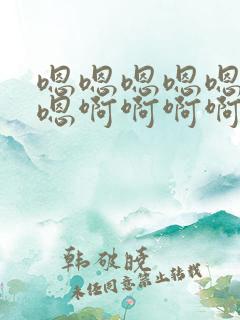 嗯嗯嗯嗯嗯
嗯啊啊啊啊
韩破晓
未经同意禁止转载